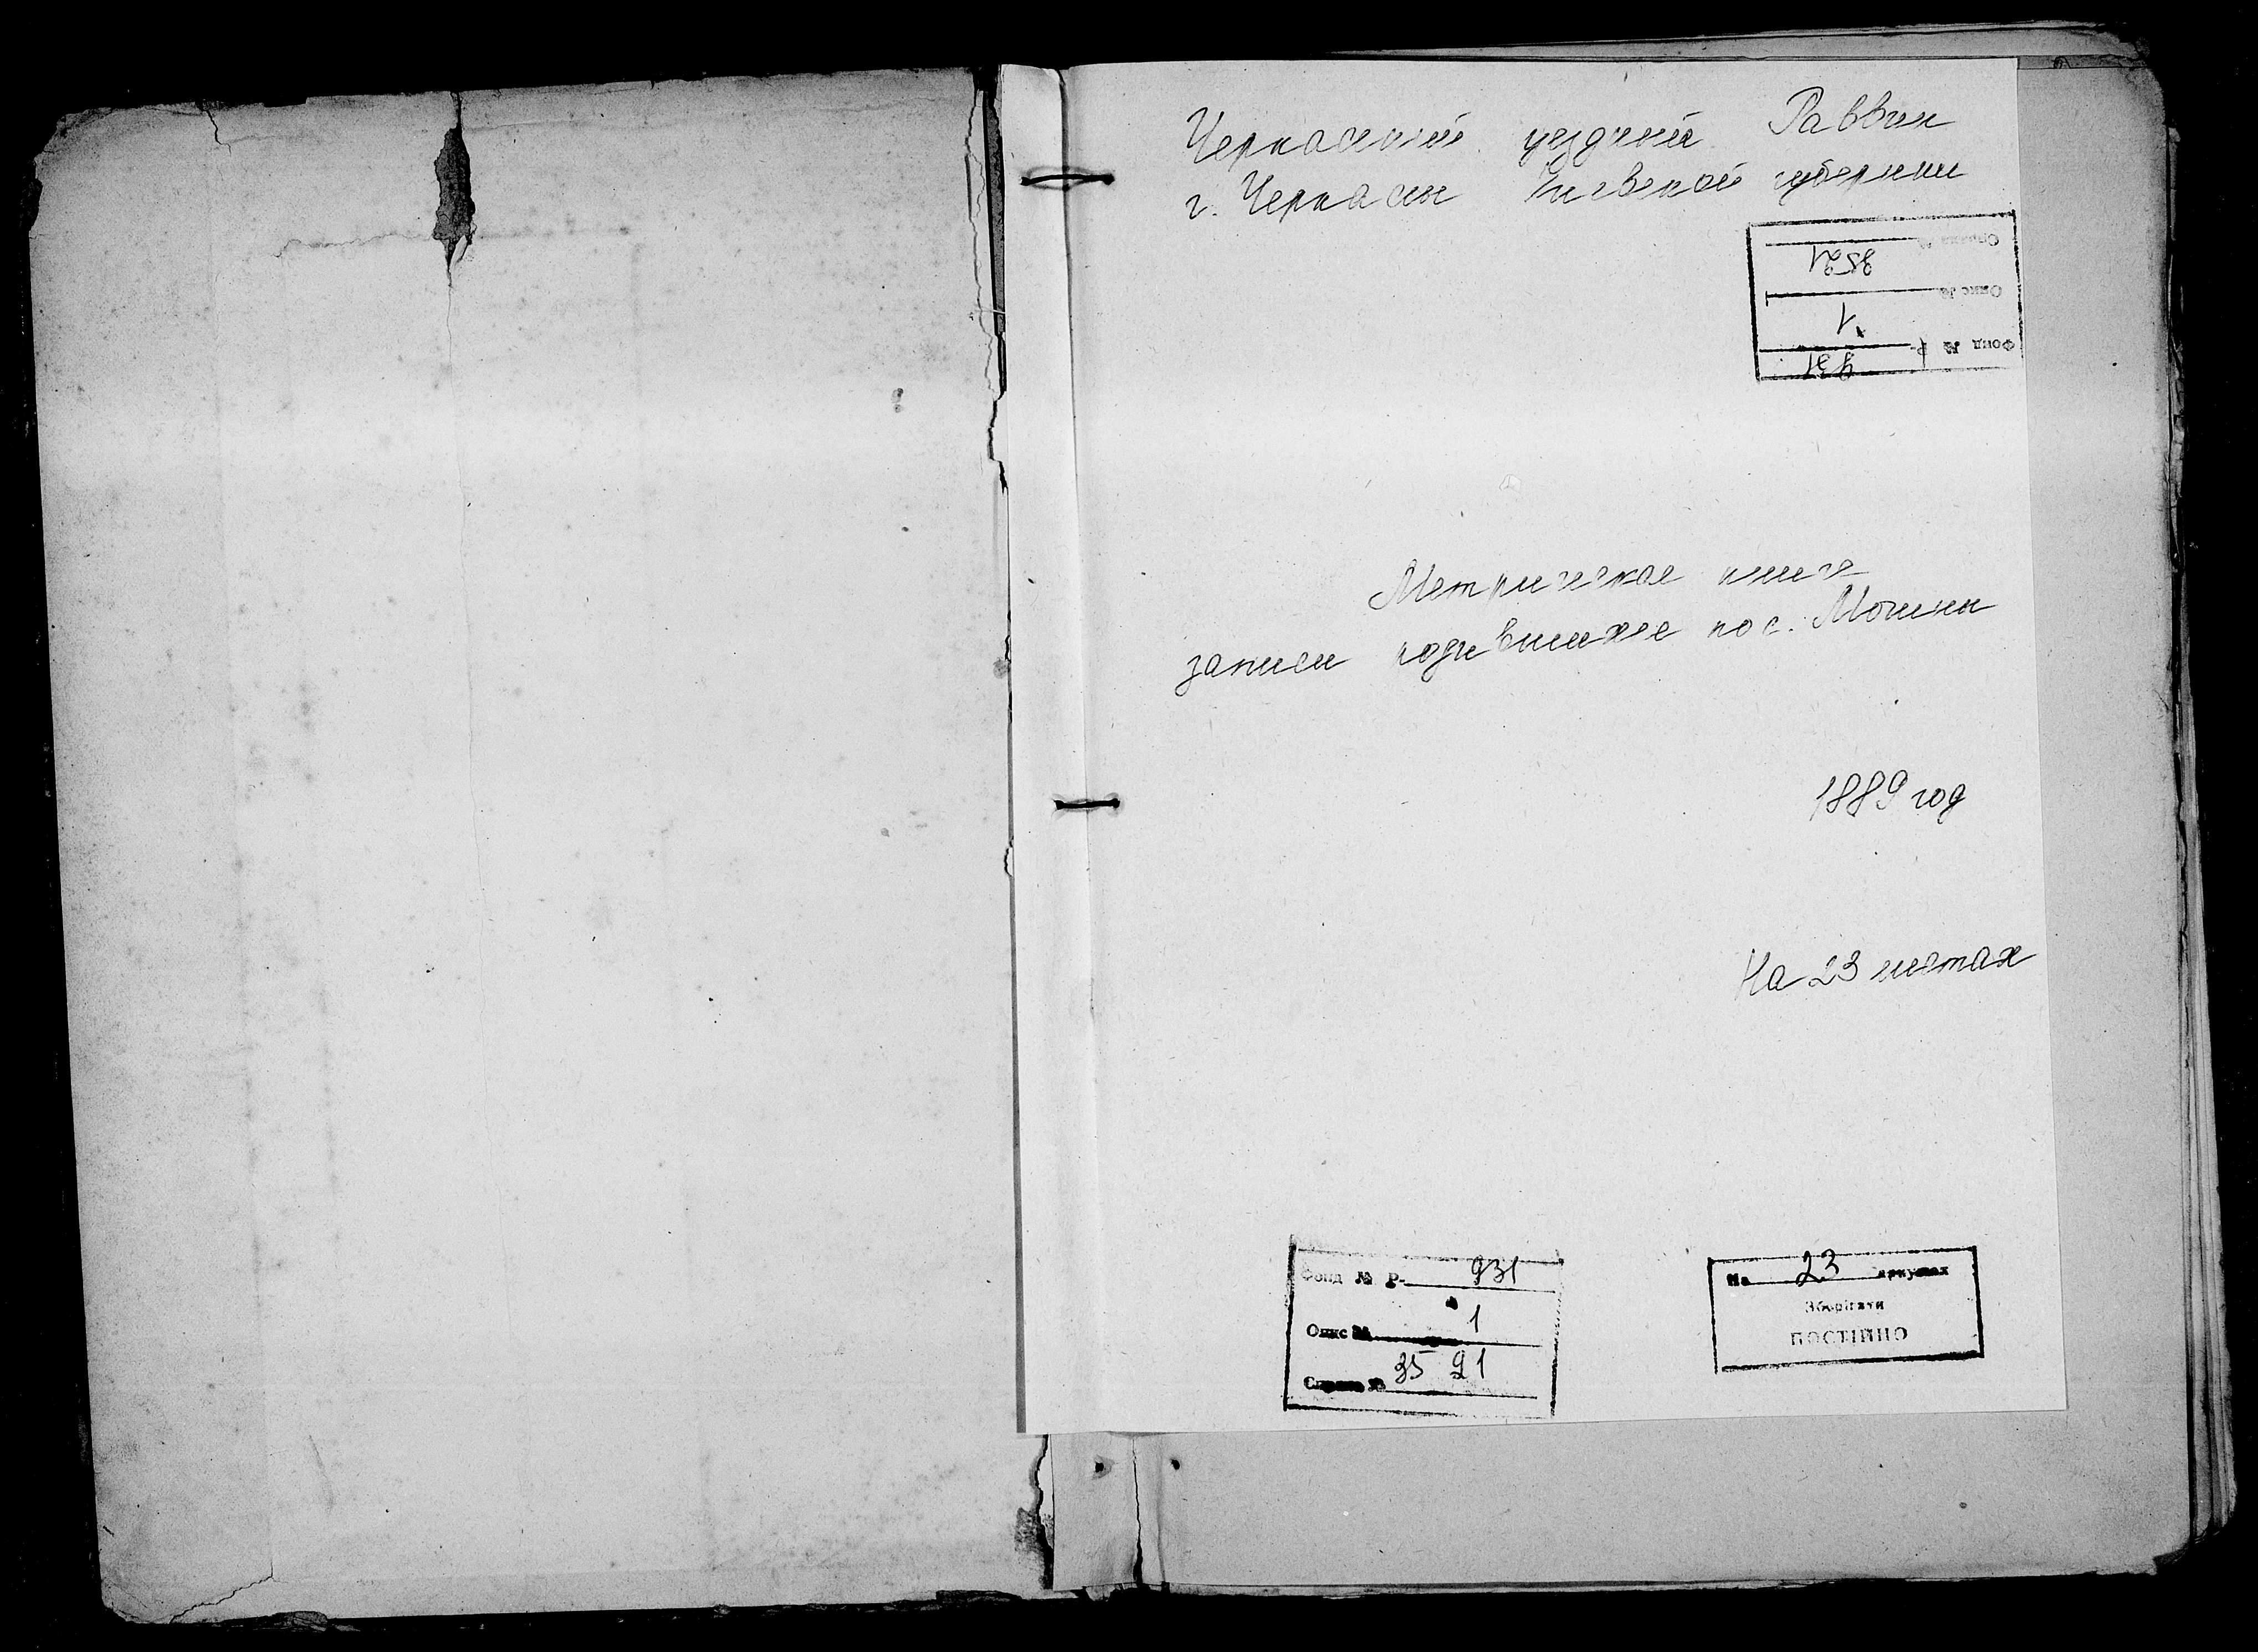 Черкасский уездный Раввин
г. Черкассы Киевской губернии
Справа №
3521
Опис №
1
Фонд № Р-
931
Метрическая книга
записи родившихся пос. Мошны
1889 год
На 23 листах
Фонд № Р- 931
Опис № 1
Справа № 3521
На 23 аркушах
Зберігати
ПОСТІЙНО